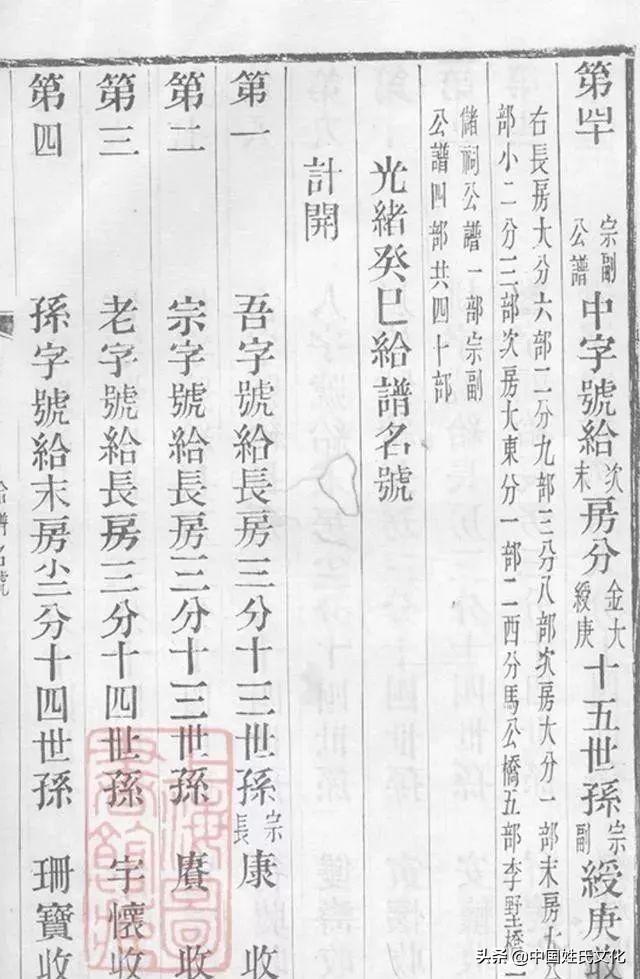 第四十 宗副公譜 中字號給 次末 房分 金大綬庚 十五世孫 宗副 綬庚收
右長房大分六部二分九部三分八部次房大分一部末房大
部小二分三部次房大東分一部二西分馬公橋五部李墅橋二
儲祠公譜一部宗副
公譜四部共四十部
光緒癸巳給譜名號
計開
第一 吾字號給長房三分十三世孫 宗長 康 收
第二 宗字號給長房三分十三世孫 賡 收
第三 老字號給長房三分十四世孫 宇懷收
第四 孫字號給末房小二分十四世孫 珊寶收
給譜名號
頭条 @中国姓氏文化